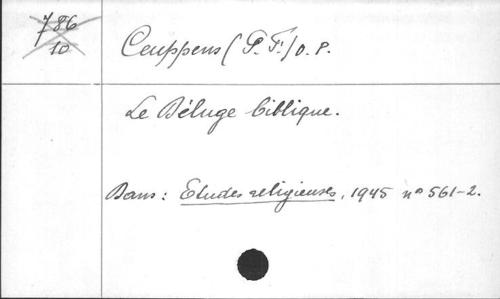 786
10
Ceuppens (P. F.) O. P.
Le Déluge biblique.
Dans : Etudes religieuses, 1945 n° 561-2.